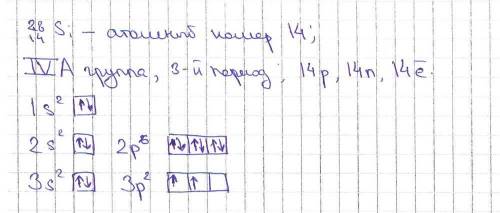 ²⁸₁₄Si – атомный номер 14;
IV A группа, 3-й период; 14p, 14n, 14ē.
1s² ↑↓
2s² ↑↓ 2p⁶ ↑↓ ↑↓ ↑↓
3s² ↑↓ 3p² ↑ ↑